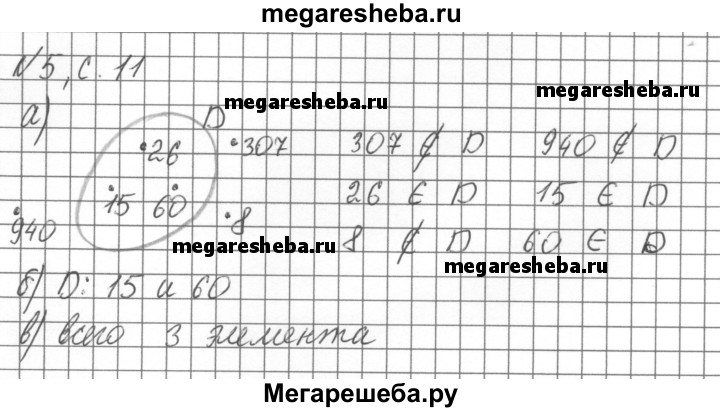 megaresheba.ru
№5, с. 11
а) D
megaresheba.ru
megaresheba.ru
•26 •307 307 ∉ D 940 ∉ D
•15 60 26 ∈ D 15 ∈ D
•940 •8 8 ∉ D 60 ∈ D
megaresheba.ru
megaresheba.ru
б) D: 15 и 60
в) всего 3 элемента
Мегарешеба.ру